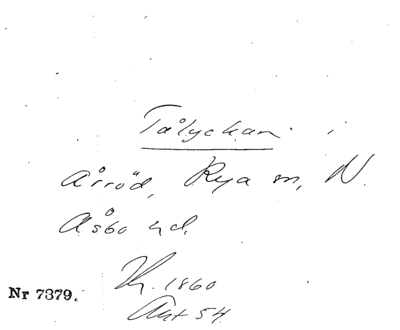 Tålyckan i
Årröd, Rya sn, N.
Åsbo hd.
Nr 7379.
1860
Akt 54